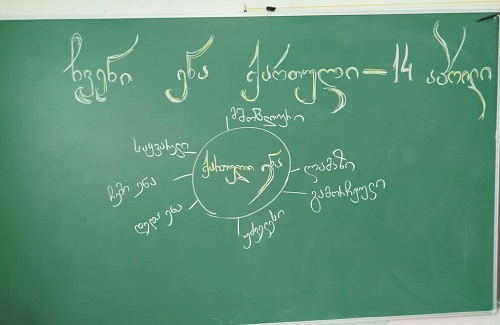 ჩვენი ენა ქართული - 14 აპრილი
მშობლიური
სიყვარული
ქართული ენა
ლამაზი
ჩემი ენა
გამორჩეული
დედა ენა
უძველესი